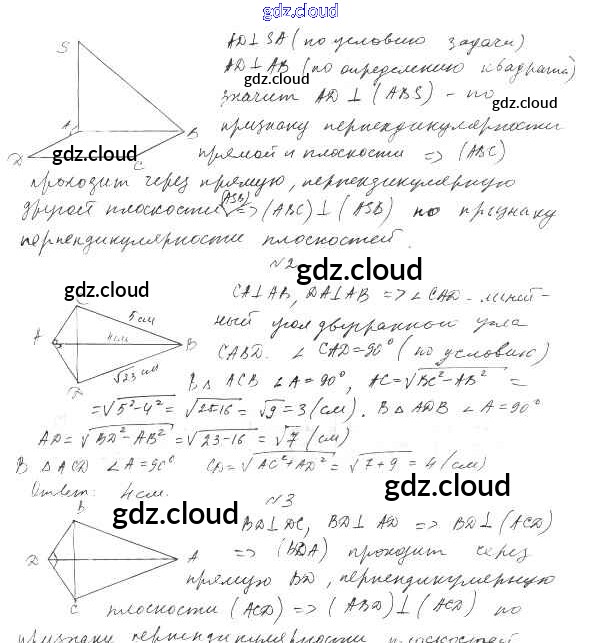 gdz.cloud
S
AD⊥SA (по условию задачи)
AD⊥AB (по определению квадрата)
gdz.cloud
значит AD⊥(ABS) - по
gdz.cloud
признаку перпендикулярности
A
B
D
C
gdz.cloud
прямой и плоскости => (ABC)
проходит через прямую, перпендикулярную
другой плоскости (ASB) => (ABC)⊥(ASB) по признаку
перпендикулярности плоскостей.
№2
gdz.cloud
gdz.cloud
CA⊥AB, DA⊥AB => ∠CAD - линей-
C
5 см
ный угол двугранного угла
A
4 см
B
CABD. ∠CAD=90° (по условию)
D
√23 см
В △ACB ∠A=90°, AC=√BC²-AB² =
=√5²-4² = √25-16 = √9 = 3 (см). В △ADB ∠A=90°
AD=√BD²-AB² = √23-16 = √7 (см)
В △ACD ∠A=90° CD=√AC²+AD² = √7+9 = 4 (см)
Ответ: 4 см.
gdz.cloud
№3
gdz.cloud
B
BD⊥DC, BD⊥AD => BD⊥(ACD)
D
A
=> (BDA) проходит через
gdz.cloud
прямую BD, перпендикулярную
C
плоскости (ACD) => (ABD)⊥(ACD) по
признаку перпендикулярности плоскостей